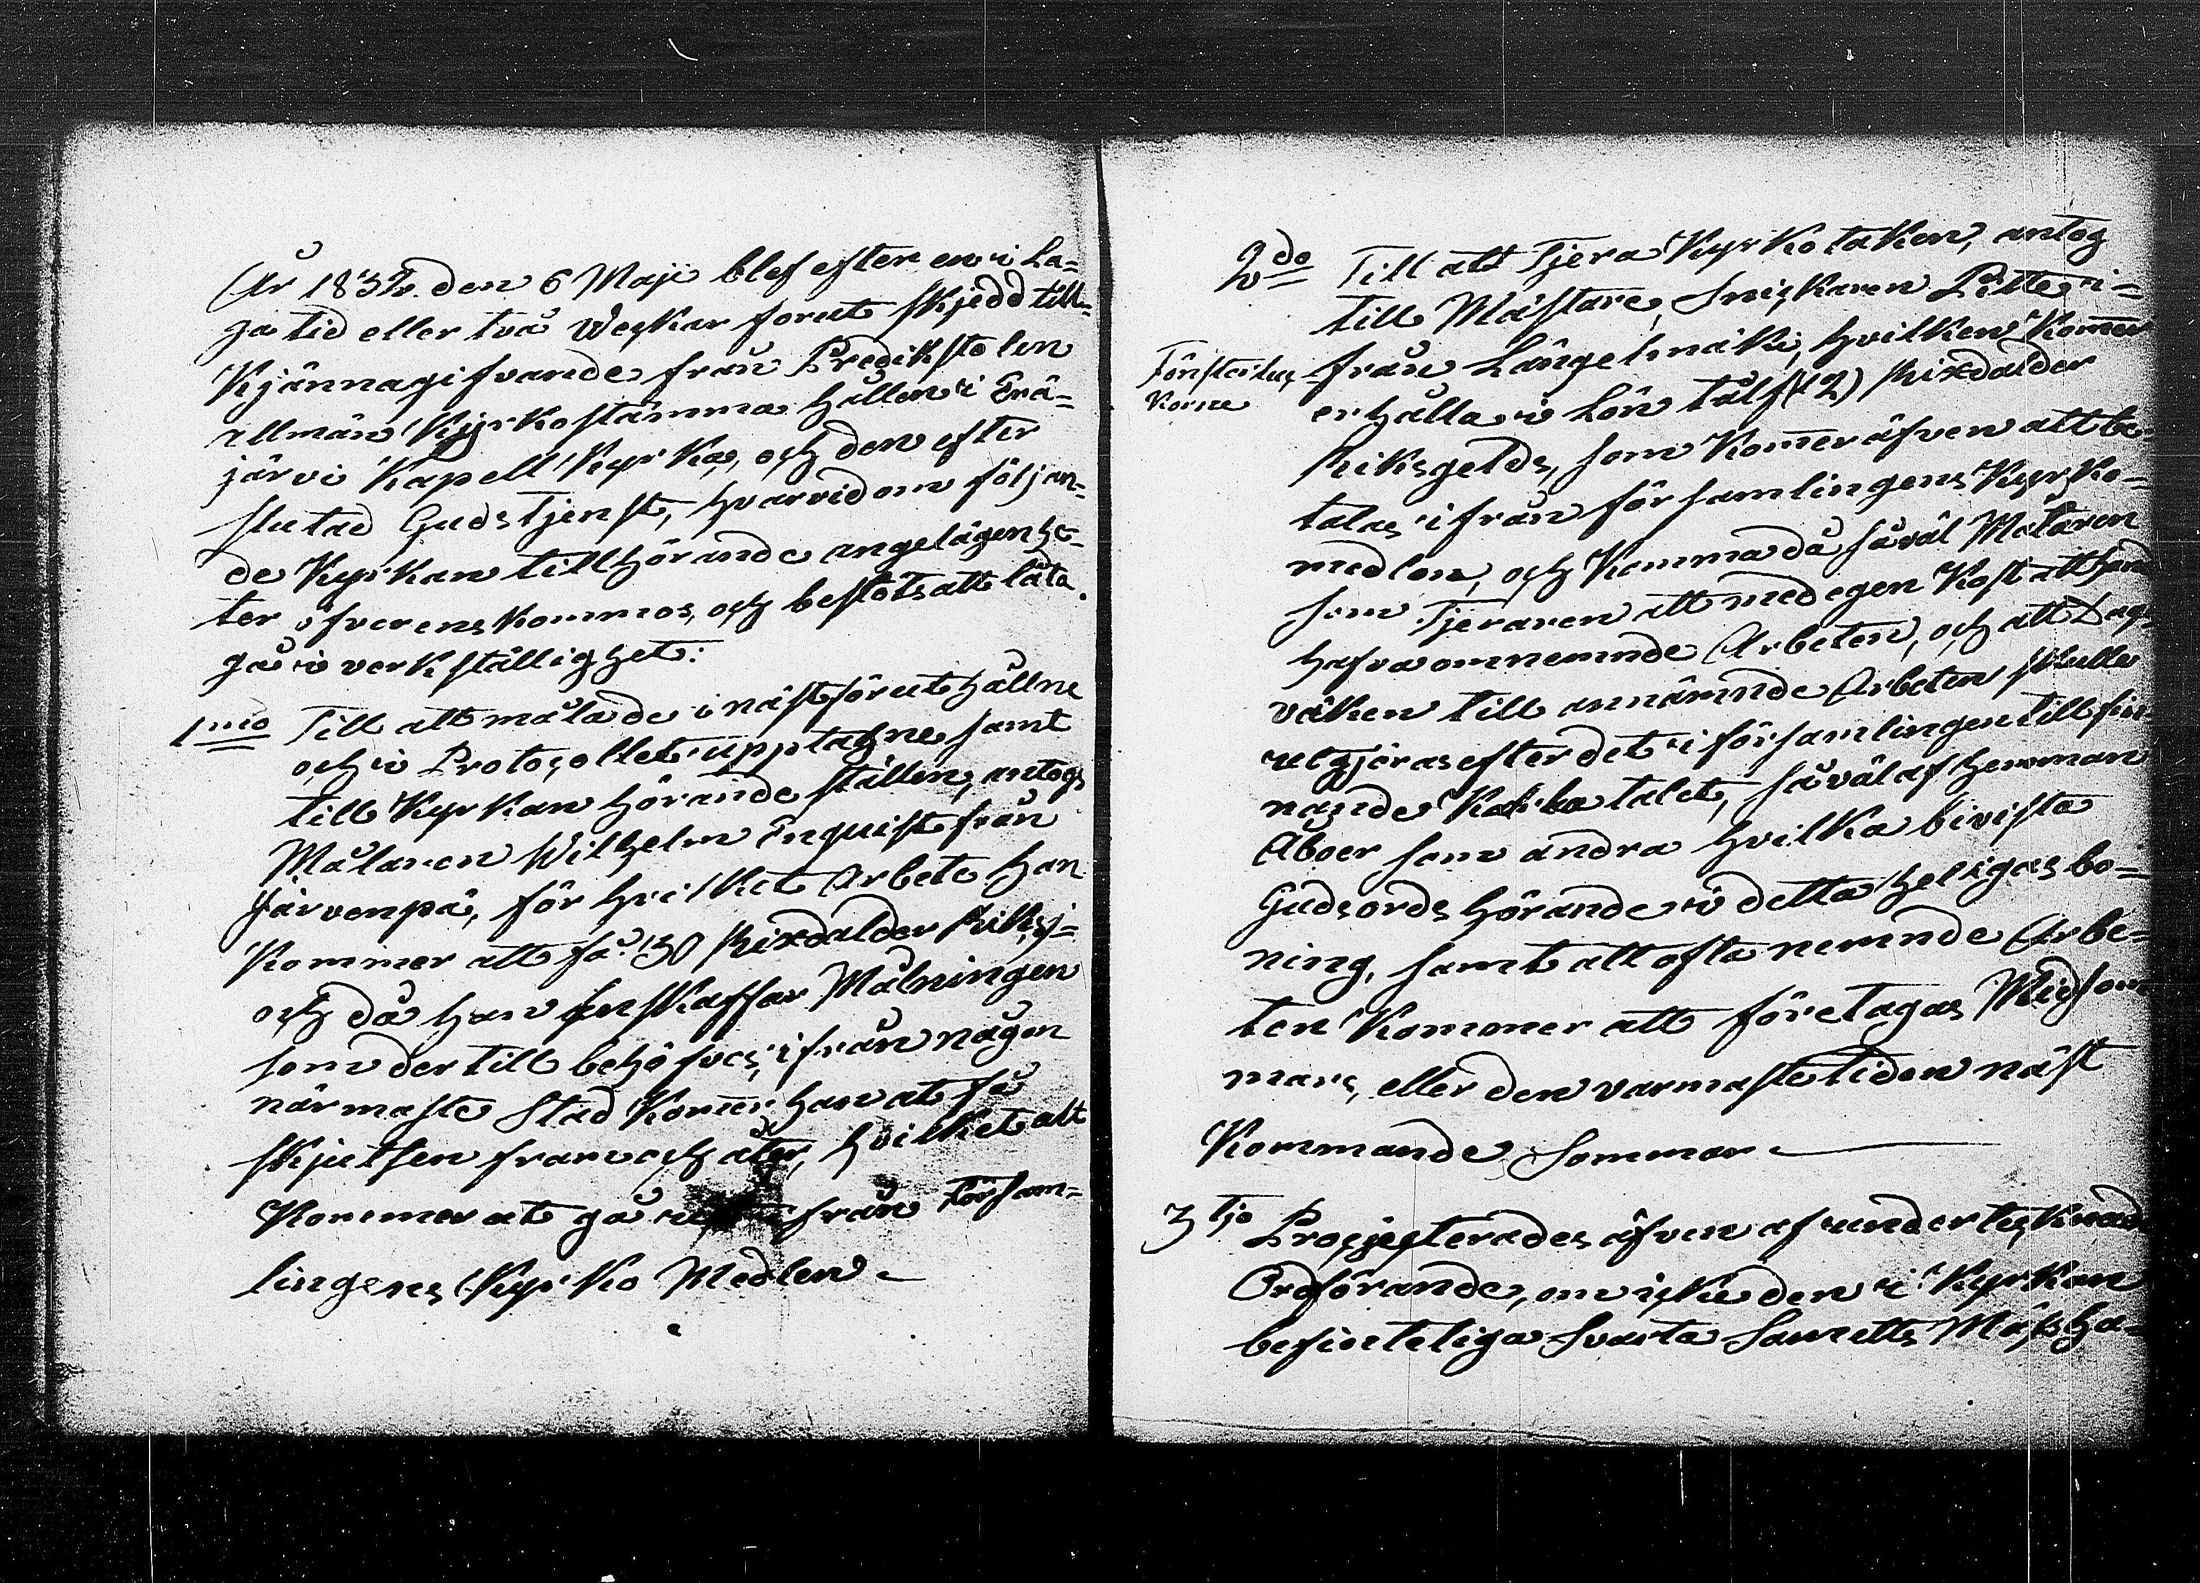 År 1832. den 6 Maji blef efter en i La=
ga tid eller två Weckor forut skjedd till=
Kjännagifvande från Predikstolen
allmän Kyrkostämma hållen i Erä=
järvi Kapell Kyrka, och den efter
slutad Gudstjenst, hvarvid om följan=
de Kyrkan tillhörande angelägenhe=
ter öfverenskommos, och beslöts att låta
gå i verkställighet:
1mo Till att måla de i näst föruthållne
och i Protocollet upptagne samt
till Kyrkan hörande ställen, antogs
Målaren Wilhelm Enquist från
Järvenpä, för hvilket Arbete han
Kommer att få 30 Rixdalder Riksg=
och då han anskaffar Målningen
som dertill behöfves, ifrån någon
närmaste Stad Kom̄er han at få
skjutsen fram och åter, hvilket alt
Kommer at gå ifrån Försam=
lingens Kyrko Medlen.
2do Till att Tjera Kyrkotaken, antog
till Mästare, Snickaren Petter i=
från Längelmäki, hvilken Kom̄er
Fönsterluc
korne
erhålla i Lön tålf (12) Rixdalder
Riksgelds, som Kom̄er äfven att be=
talas ifrån församlingens Kyrko=
medlen, och Komma då såväl Målaren
som Tjeraren att med egen Kost att
hafva omnemnde Arbeten, och att Dag=
värken till annämnde Arbeten skulle
utgjöras efter det i församlingen till fin=
nande talet, såväl af Hemman
Åboer som andra hvilka bivista
Gudsords hörande i detta heligas bo=
ning, samt att ofta nemnde Arbe=
ten Kommer att företagas Midsom
mars, eller den varmaste tiden näst
Kommande Sommar
3tjo Procjecterades äfven af undertecknad
Ordförande, om icke den i Kyrkan
befinteliga Svarta Sammetts Mässha=